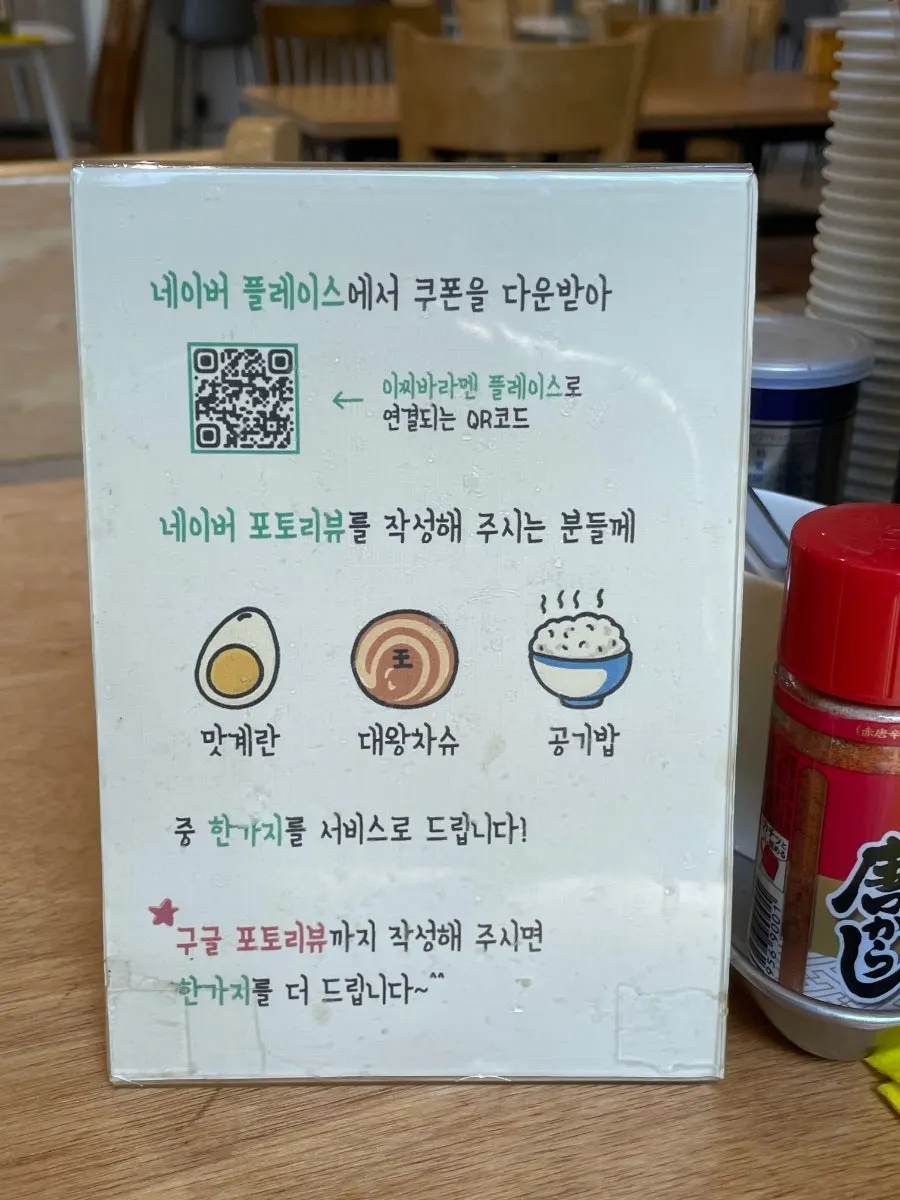 네이버 플레이스에서 쿠폰을 다운받아
← 이찌바라멘 플레이스로
연결되는 QR코드
네이버 포토리뷰를 작성해 주시는 분들께
王
맛계란
대왕차슈
공기밥
중 한가지를 서비스로 드립니다!
구글 포토리뷰까지 작성해 주시면
한가지를 더 드립니다~^^
唐がらし